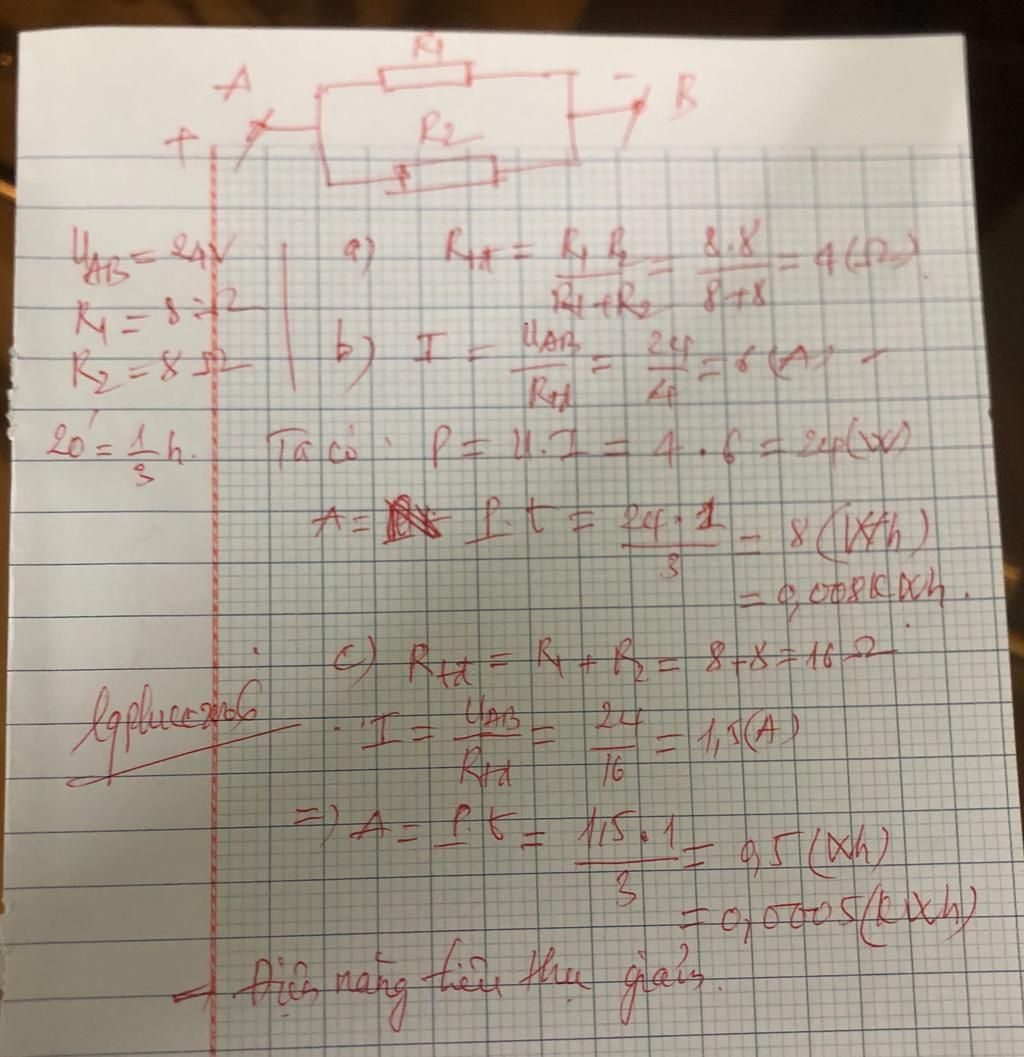 R₁
A
- B
R₂
+
U_AB = 24V
R₁ = 8Ω
R₂ = 8Ω
a) Rtđ = R₁R₂/R₁+R₂ = 8.8/8+8 = 4(Ω).
b) I = U_AB/Rtđ = 24/4 = 6(A)
20' = 1/3 h. Ta có: P = U.I = 4.6 = 24(W)
A = P.t = 24.1/3 = 8(Wh)
= 0,008KWh.
c) Rtđ = R₁ + R₂ = 8+8 = 16Ω
I = U_AB/Rtđ = 24/16 = 1,5(A)
=) A = P.t = 1,5.1/3 = 0,5(Wh)
= 0,0005(KWh)
Điện năng tiêu thụ giảm.